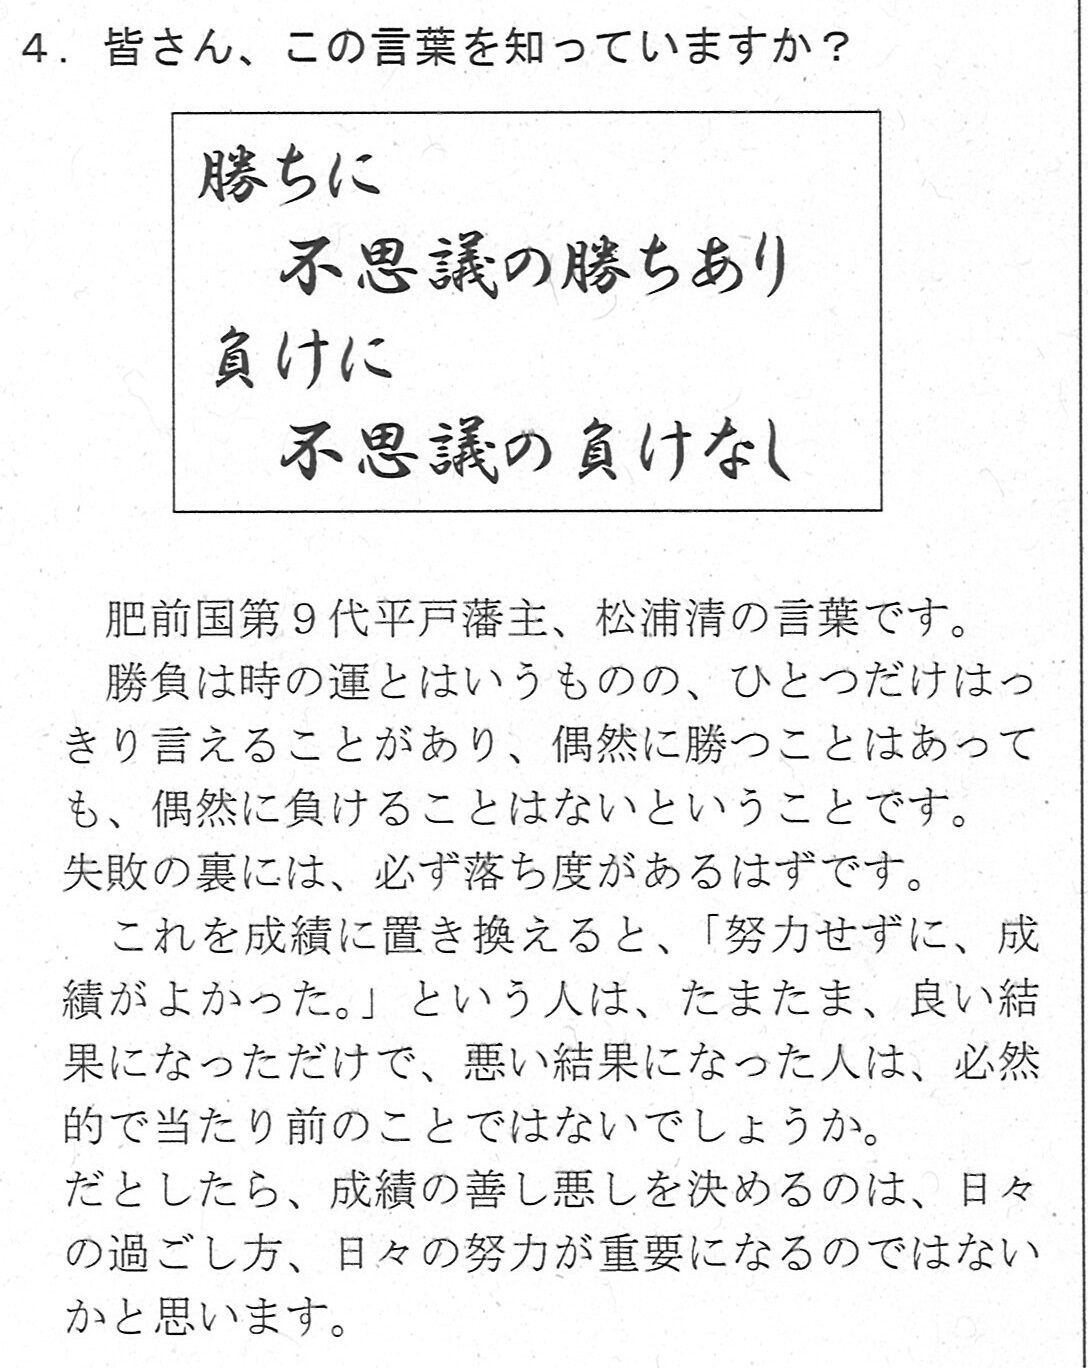 ４．皆さん、この言葉を知っていますか？
勝ちに
不思議の勝ちあり
負けに
不思議の負けなし
肥前国第９代平戸藩主、松浦清の言葉です。
勝負は時の運とはいうものの、ひとつだけはっ
きり言えることがあり、偶然に勝つことはあって
も、偶然に負けることはないということです。
失敗の裏には、必ず落ち度があるはずです。
これを成績に置き換えると、「努力せずに、成
績がよかった。」という人は、たまたま、良い結
果になっただけで、悪い結果になった人は、必然
的で当たり前のことではないでしょうか。
だとしたら、成績の善し悪しを決めるのは、日々
の過ごし方、日々の努力が重要になるのではない
かと思います。